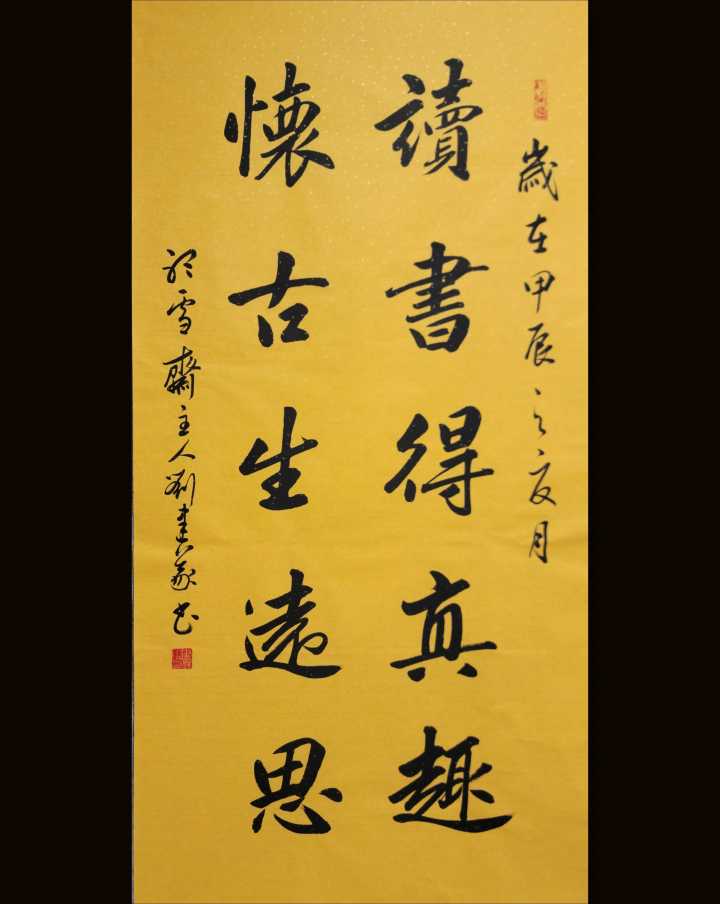 歲在甲辰之夏月
讀書得真趣
懷古生遠思
雪齋主人劉書